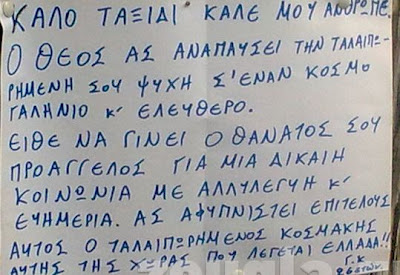 ΚΑΛΟ ΤΑΞΙΔΙ ΚΑΛΕ ΜΟΥ ΑΝΘΡΩΠΕ.
Ο ΘΕΟΣ ΑΣ ΑΝΑΠΑΥΣΕΙ ΤΗΝ ΤΑΛΑΙΠΩ-
ΡΗΜΕΝΗ ΣΟΥ ΨΥΧΗ Σ'ΕΝΑΝ ΚΟΣΜΟ
ΓΑΛΗΝΙΟ Κ' ΕΛΕΥΘΕΡΟ.
ΕΙΘΕ ΝΑ ΓΙΝΕΙ Ο ΘΑΝΑΤΟΣ ΣΟΥ
ΠΡΟΑΓΓΕΛΟΣ ΓΙΑ ΜΙΑ ΔΙΚΑΙΗ
ΚΟΙΝΩΝΙΑ ΜΕ ΑΛΛΥΛΕΓΥΗ Κ'
ΕΥΗΜΕΡΙΑ. ΑΣ ΑΦΥΠΝΙΣΤΕΙ ΕΠΙΤΕΛΟΥΣ
ΑΥΤΟΣ Ο ΤΑΛΑΙΠΩΡΗΜΕΝΟΣ ΚΟΣΜΑΚΗΣ
ΑΥΤΗΣ ΤΗΣ ΧΩΡΑΣ ΠΟΥ ΛΕΓΕΤΑΙ ΕΛΛΑΔΑ!!
Γ.Κ
ετων.